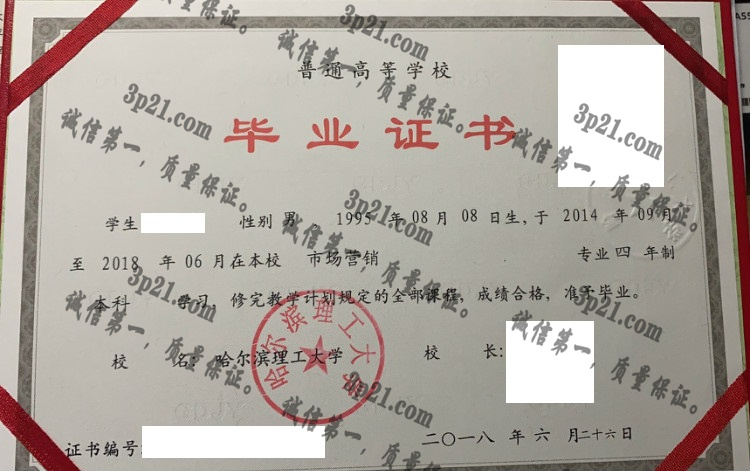 普通高等学校
毕业证书
学生 性别 男 1995 年 08 月 08 日生, 于 2014 年 09 月
至 2018 年 06 月在本校 市场营销 专业 四 年制
本科 学习, 修完教学计划规定的全部课程, 成绩合格, 准予毕业。
校 名: 哈尔滨理工大学 校 长:
哈尔滨理工大学
证书编号: 二〇一八 年 六 月 二十六日
3p21.com
诚信第一,质量保证。
3p21.com
诚信第一,质量保证。
3p21.com
诚信第一,质量保证。
3p21.com
诚信第一,质量保证。
3p21.com
诚信第一,质量保证。
3p21.com
诚信第一,质量保证。
3p21.com
诚信第一,质量保证。
3p21.com
诚信第一,质量保证。